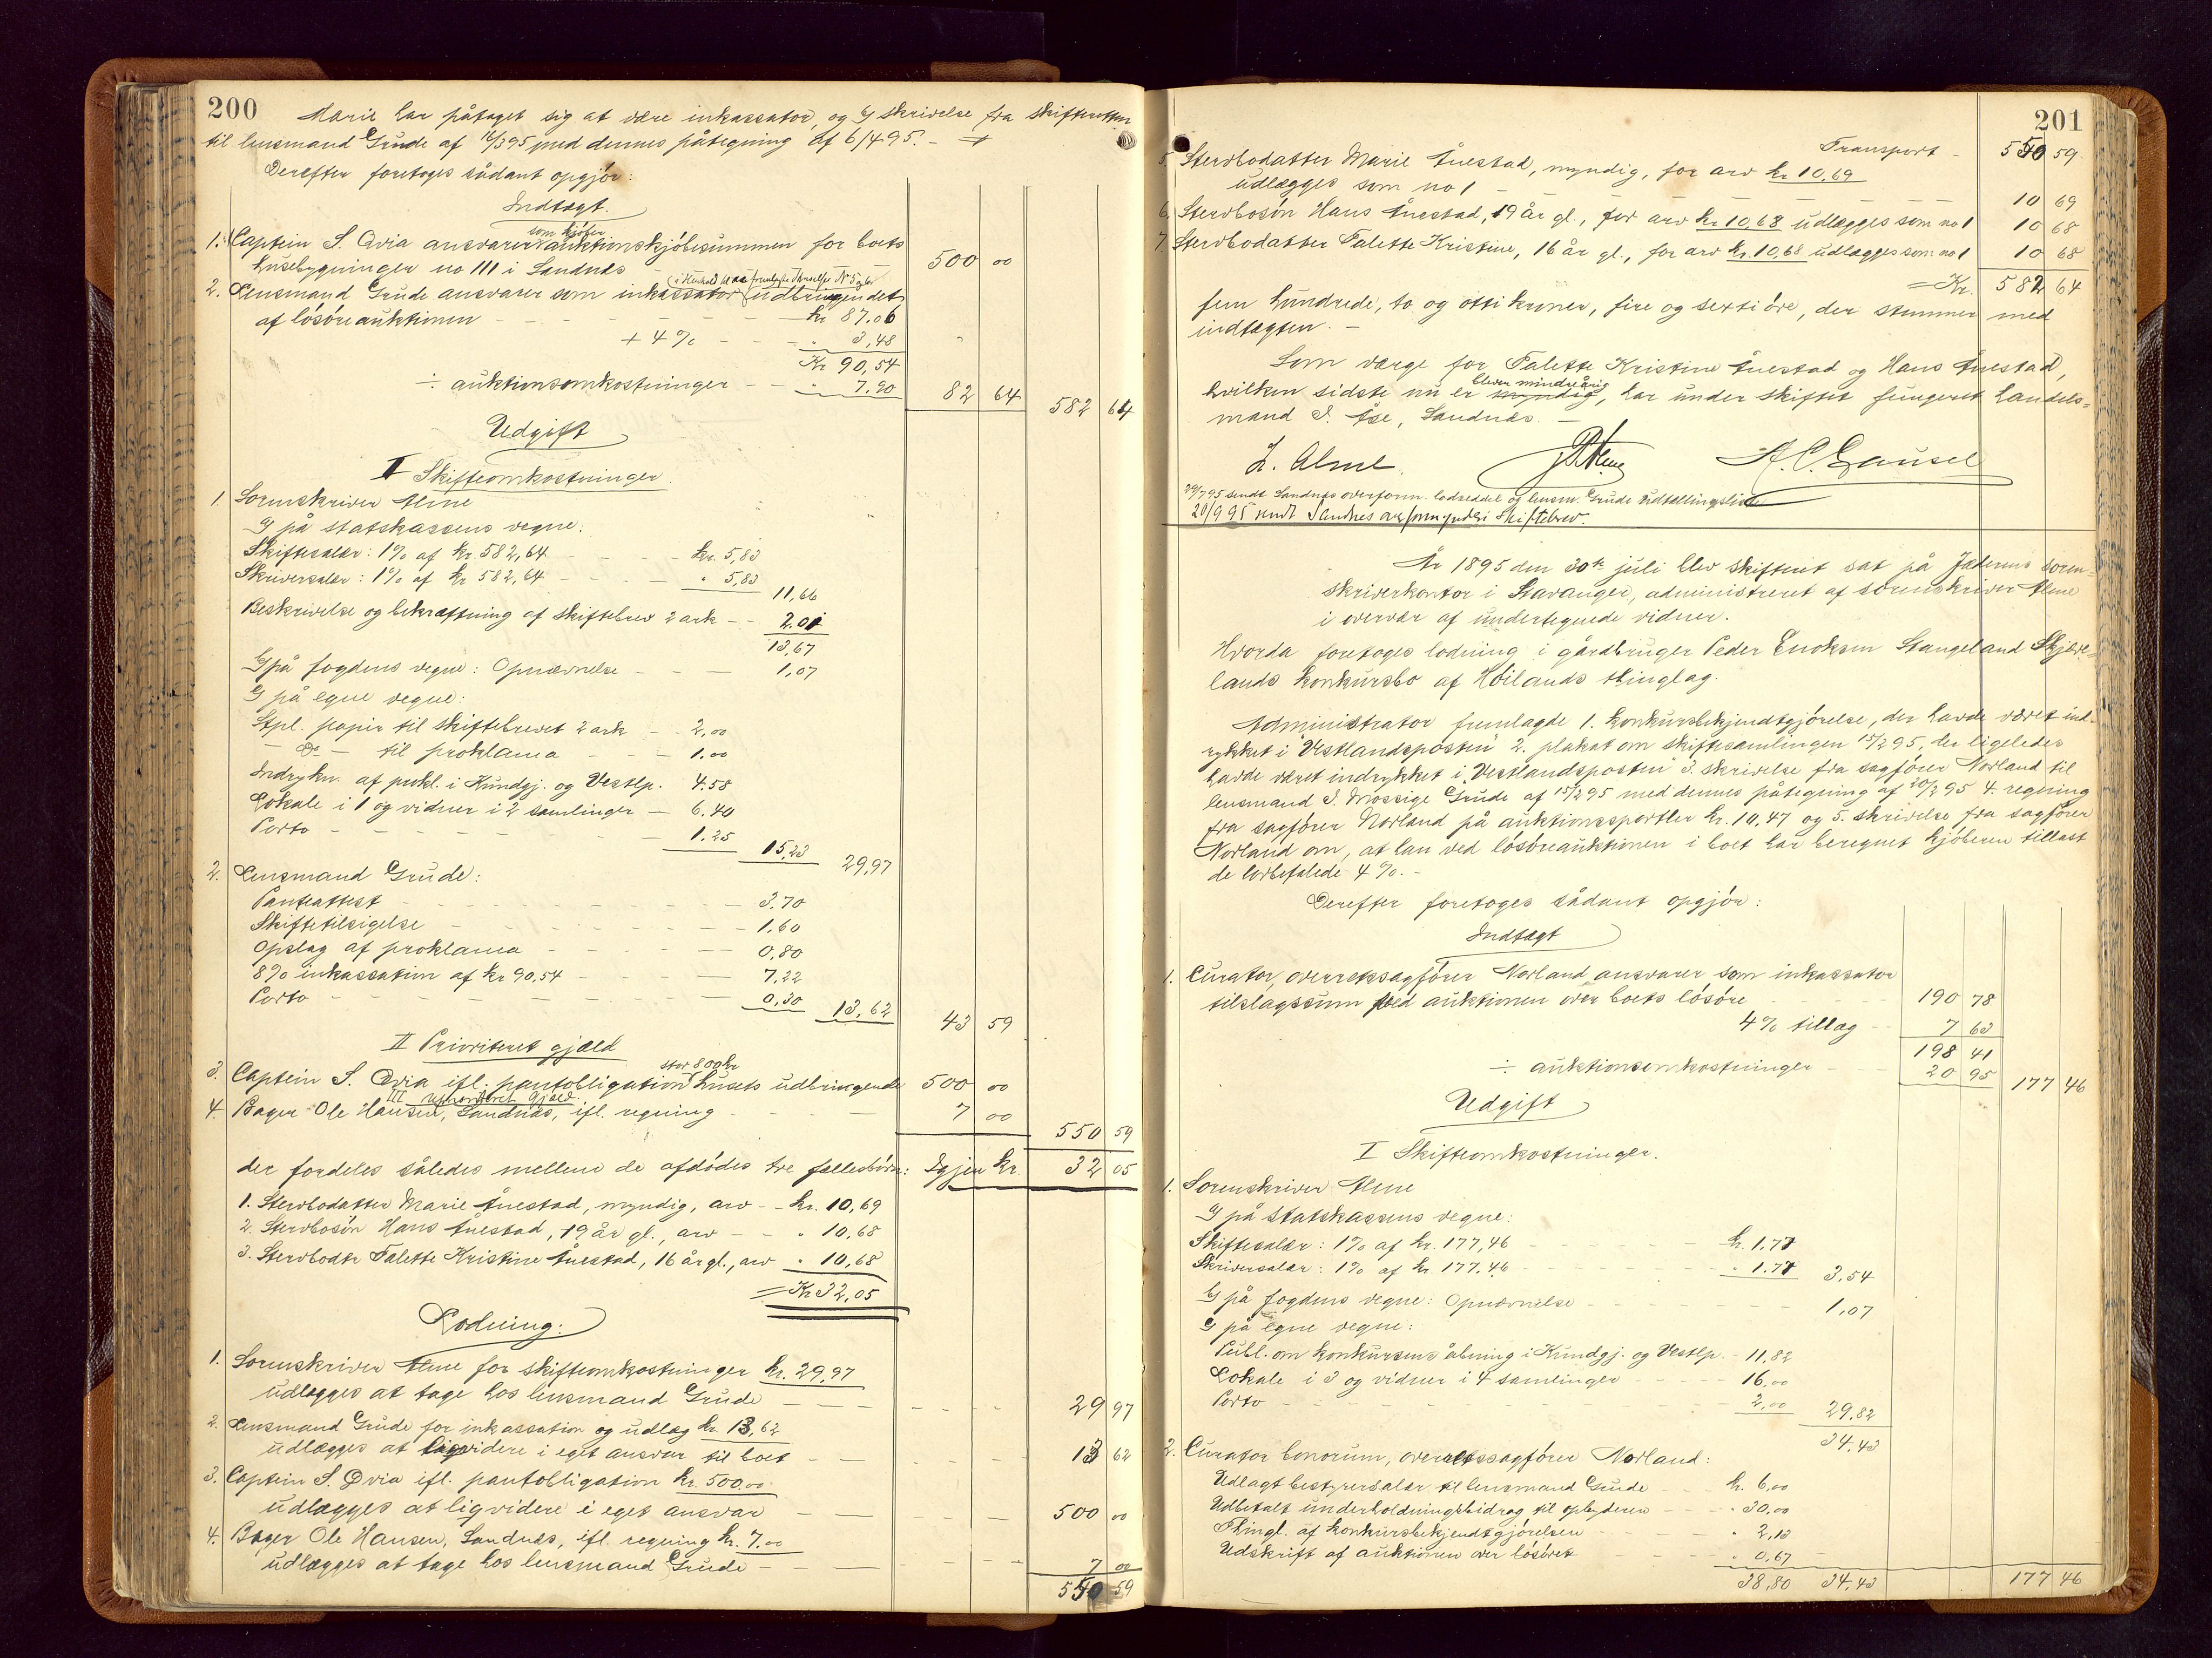 200
Marie har påtaget sig at være inkassator, og skrivelse fra skifteretten
til lensmand Grude af 16/3 95 med dennes påtegning af 6/4 95. -
Derefter foretoges sådant opgjør:
Indtægt.
som kjøber
1. Captein S. Øvia ansvarer auktionskjøbesummen for boets 500 00
husebygninger no 111 i Sandnæs
2. Lensmand Grude ansvarer som inkassator udbringendet
af løsøreauktionen - - - kr 87.06
+ 4% - - " 3,48
Kr 90,54
÷ auktionsomkostninger - - " 7.90 82 64 582 64
Udgift
I Skifteomkostninger.
1. Sorenskriver Alme
på statskassens vegne:
Skiftesalær: 1% af kr. 582,64 - - - kr. 5,83
Skriversalær: 1% af kr 582,64 - - - " 5,83 11,66
Beskrivelse og bekræftning af skiftebrev 2 ark - - 2.01
13,67
på fogdens vegne: Opnævnelse - - - 1,07
på egne vegne:
Stpl. papir til skiftebrevet 2 ark - - 2,00
- Do - til proklama - - 1.00
Indrykn. af prokl. i Kundgj. og Vestlp. 4.58
Lokale i 1 og vidner i 2 samlinger - 6.40
Porto - - - 1.25 15,23 29,97
2. Lensmand Grude:
Panteattest - - - 3.70
Skiftetilsigelse - - - 1.60
Opslag af proklama - - - 0,80
8% inkassation af kr 90,54 - - - 7,22
Porto - - - 0,30 13,62 43 59
II Prioriteret gjæld
stor 800 kr
3. Captein S. Øvia ifl. pantobligation husets udbringende 500 00
III uprioriteret gjæld
4. Bager Ole Hansen, Sandnæs, ifl. regning - - 7 00 550 59
der fordeles således mellem de afdødes tre fællesbørn: Igjen kr. 32 05
1. Stervbodatter Marie Auestad, myndig, arv - - kr. 10,69
2. Stervbosøn Hans Auestad, 19 år gl., arv - - " 10,68
3. Stervbodtr Talette Kristine Auestad, 16 år gl., arv " 10,68
= Kr 32,05
Lodning:
1. Sorenskriver Alme for skifteomkostninger kr. 29,97
udlægges at tage hos lensmand Grude - - - 29 97
2. Lensmand Grude for inkassation og udlæg kr. 13,62
udlægges at liqvidere i eget ansvar til boet - - - 13 62
3. Captein S. Øvia ifl. pantobligation kr. 500.00
udlægges at liqvidere i eget ansvar - - - 500 00
4. Bager Ole Hansen, Sandnæs, ifl. regning kr. 7.00
udlægges at tage hos lensmand Grude - - - 7 00
550 59
201
Transport - 550 59
5. Stervbodatter Marie Auestad, myndig, for arv kr 10,69
udlægges som no 1 - - - 10 69
6. Stervbosøn Hans Auestad, 19 år gl., for arv kr 10,68 udlægges som no 1 10 68
7. Stervbodatter Talette Kristine, 16 år gl., for arv kr. 10,68 udlægges som no 1 10 68
= Kr. 582 64
fem hundrede, to og otti kroner, fire og sexti øre, der stemmer med
indtægten. -
Som værge for Talette Kristine Auestad og Hans Auestad,
bleven mindreårig
hvilken sidste nu er myndig, har under skiftet fungeret handels=
mand S. Åse, Sandnæs. -
L. Alme. A. C. Gausel
29/7 95 sendt Sandnæs overform. lodseddel og lensm. Grude udtællingsliste
20/9 95 sendt Sandnes overformynderi skiftebrev.
År 1895 den 30te juli blev skifteret sat på Jæderens soren=
skriverkontor i Stavanger, administreret af sorenskriver Alme
i overvær af undertegnede vidner.
Hvorda foretoges lodning i gårdbruger Peder Enoksen Stangeland Skjæve=
lands konkursbo af Høilands thinglag.
Administrator fremlagde 1. konkursbekjendtgjørelse, der havde været ind-
rykket i "Vestlandsposten" 2. plakat om skiftesamlingen 15/2 95, der ligeledes
havde været indrykket i "Vestlandsposten" 3. skrivelse fra sagfører Norland til
lensmand S. Mossige Grude af 15/2 95 med dennes påtegning af 20/2 95 4. regning
fra sagfører Norland på auktionssportler kr. 10.47 og 5. skrivelse fra sagfører
Norland om, at han ved løsøreauktionen i boet har beregnet kjøberen tillagt
de lovbefalede 4%. -
Derefter foretoges sådant opgjør:
Indtægt
1. Curator, overretssagfører Norland ansvarer som inkassator
tilslagssum ved auktionen over boets løsøre 190 78
4% tillæg - 7 63
198 41
÷ auktionsomkostninger - 20 95 177 46
Udgift
I Skifteomkostninger.
1. Sorenskriver Alme
på statskassens vegne:
Skiftesalær: 1% af kr. 177,46 - - - kr. 1.77
Skriversalær: 1% af kr. 177.46 - - - " 1.77 3,54
på fogdens vegne: Opnævnelse - - - 1,07
på egne vegne:
Publ. om konkursens åbning i Kundgj. og Vestlp. - 11,82
Lokale i 3 og vidner i 4 samlinger - - - 16,00
Porto - - - 2,00 29,82
34,43
2. Curator bonorum, overretssagfører Norland:
Udlagt bestyrersalær til lensmand Grude - - kr. 6,00
Udbetalt underholdningsbidrag til opbyderen - - " 30,00
Thingl. af konkursbekjendtgjørelsen - - " 2,13
Udskrift af auktionen over løsøret - - " 0,67
38,80 34,43 177 46